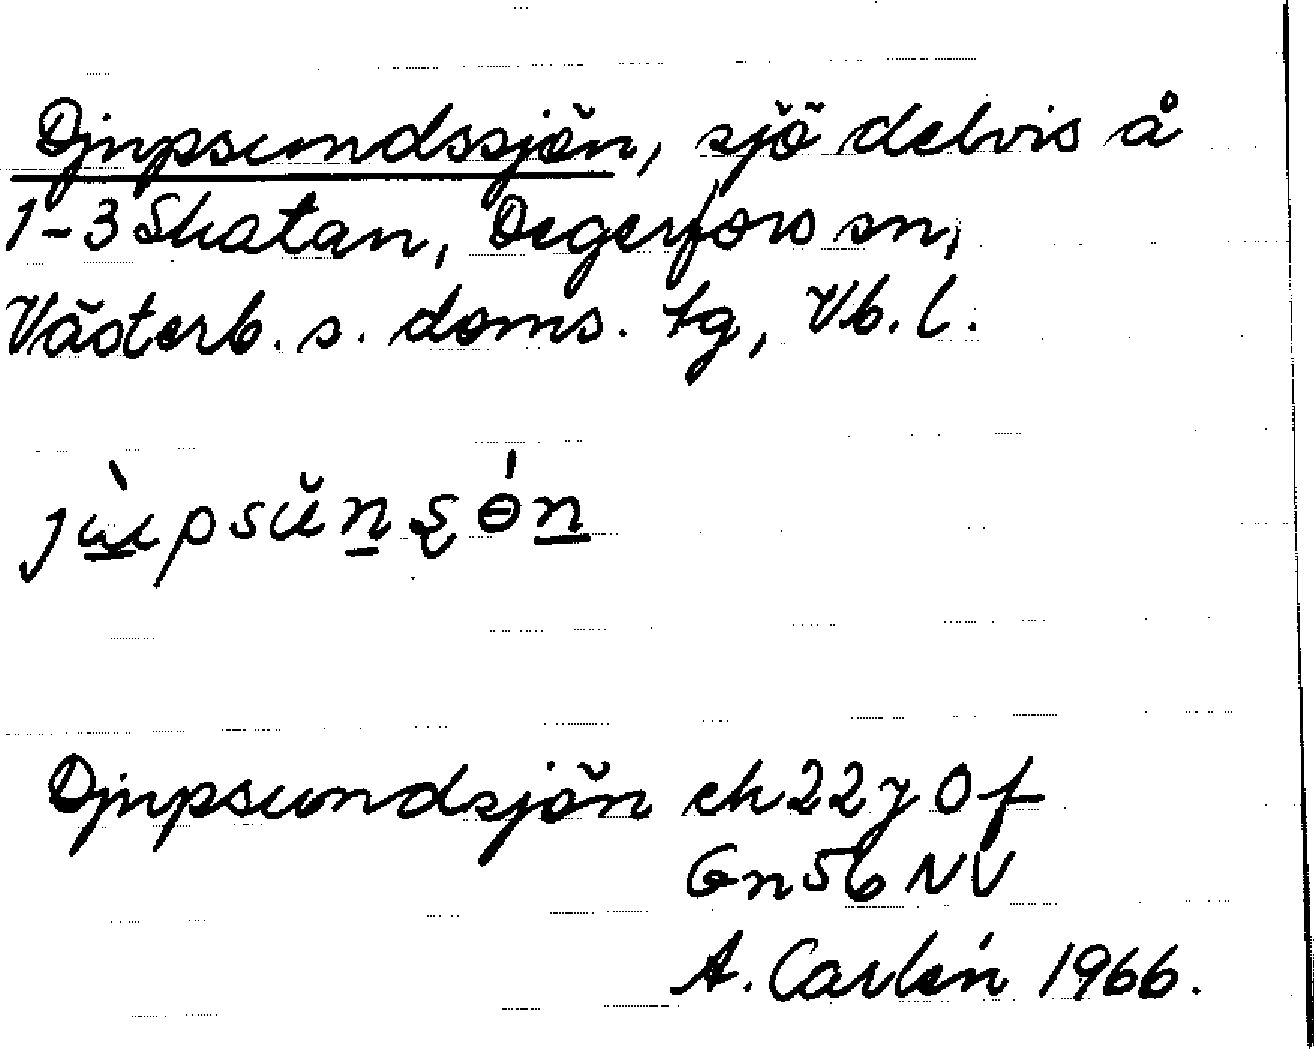 Djupsundssjön, sjö delvis å
1-3 Skatan, Degerfors sn,
Västerb. s. doms. tg, Vb. l.
Djupsundsjön ek 22 y 0 f
Gn 56 NV
A. Carlén 1966.